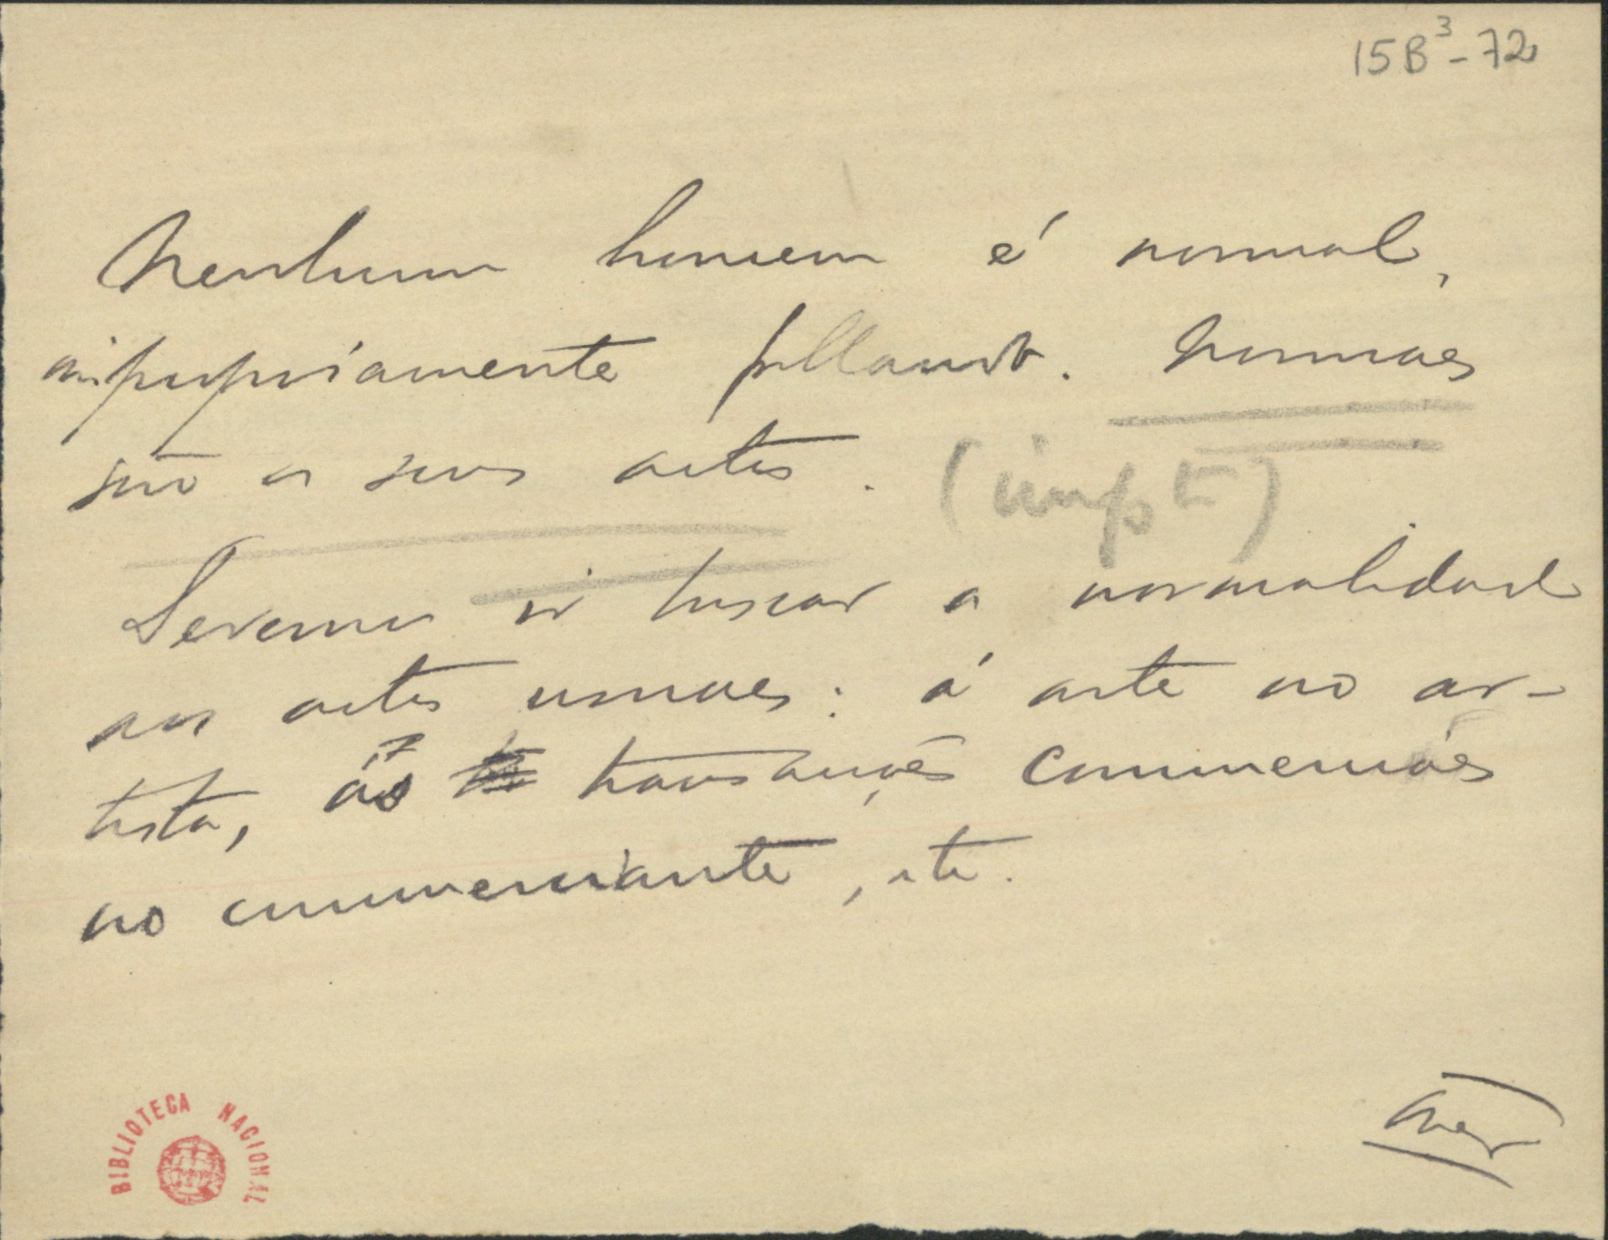 15B³-72
Nenhum homem é normal,
impropriamente fallando. Normaes
são os seus actos. (impte)
Devemos ir buscar a normalidade
aos actos normaes: á arte no ar-
tista, ás transacções commerciaes
no commerciante, etc.
BIBLIOTECA NACIONAL